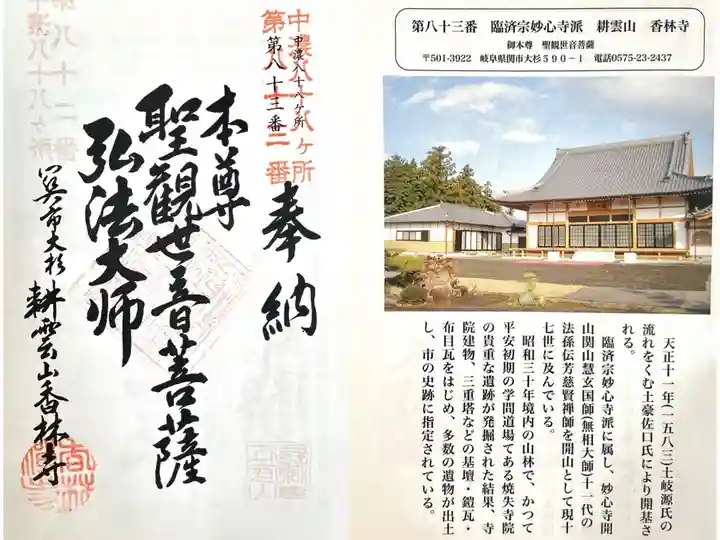 奉納
中濃八十八ケ所
第八十三番
本尊
聖観世音菩薩
弘法大师
関市大杉
耕雲山香林寺
第八十三番　臨済宗妙心寺派　耕雲山　香林寺
御本尊　聖観世音菩薩
〒501-3922　岐阜県関市大杉５９０－１　電話0575-23-2437
天正十一年(一五八三)土岐源氏の
流れをくむ土豪佐口氏により開基さ
れる。
臨済宗妙心寺派に属し、妙心寺開
山関山慧玄国師(無相大師)十一代の
法孫伝芳慈賢禅師を開山として現十
七世に及んでいる。
昭和三十年境内の山林で、かつて
平安初期の学問道場である焼失寺院
の貴重な遺跡が発掘された結果、寺
院建物、三重塔などの基壇・鎧瓦・
布目瓦をはじめ、多数の遺物が出土
し、市の史跡に指定されている。